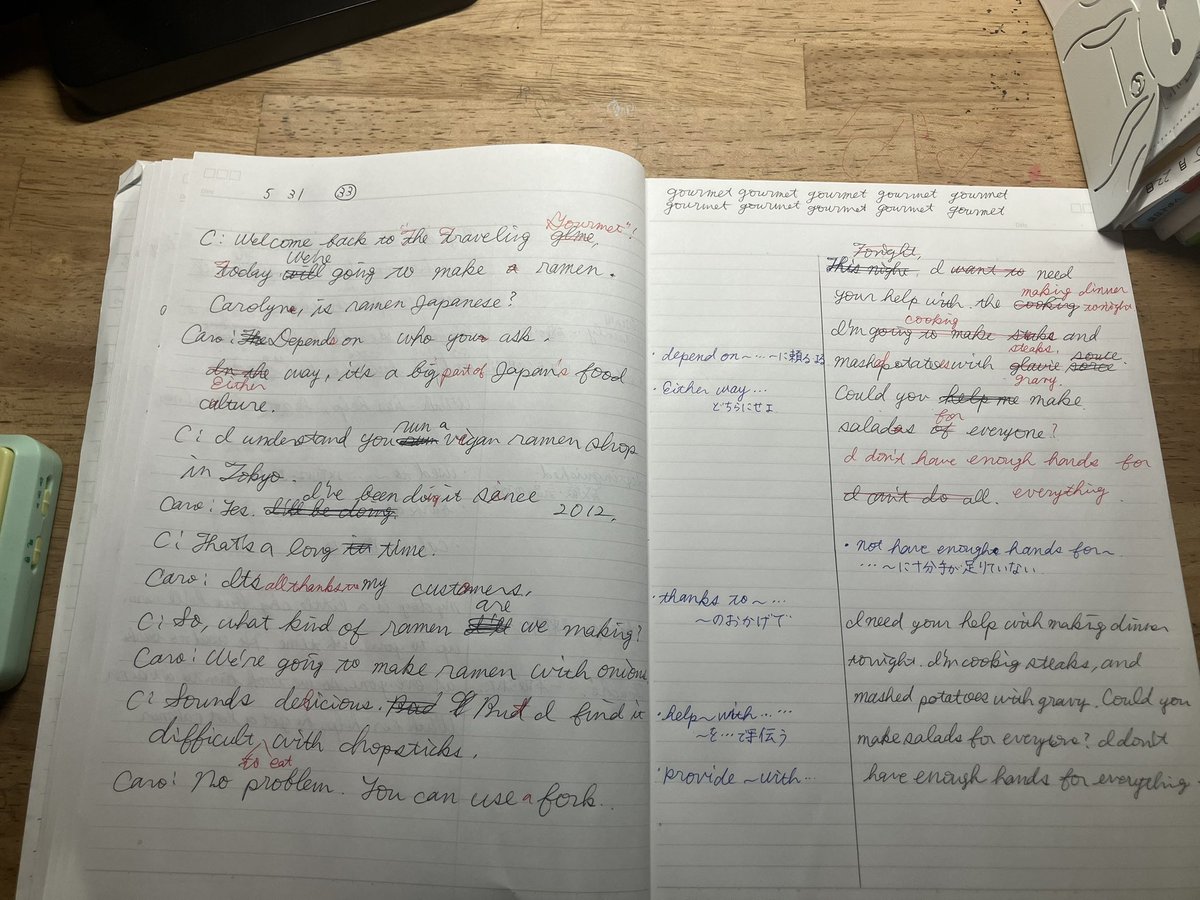 5 31 33
C: Welcome back to "The Traveling glme, Gourmet"!
Today will We're going to make a ramen.
Carolyne, is ramen Japanese?
Caro: The Depends on who your ask.
In the way, it's a big part of Japan's food
Either
culture.
C: I understand you run a vegan ramen shop
in Tokyo.
Caro: Yes. I'll be doing. I've been doing it since 2012.
C: That's a long in time.
Caro: It's all thanks to my customers.
C: So, what kind of ramen are we making?
Caro: We're going to make ramen with onions
C: Sounds delicious. But I find it
difficult to eat with chopsticks.
Caro: No problem. You can use a fork.
gourmet gourmet gourmet gourmet gourmet
gourmet gourmet gourmet gourmet gourmet
Tonight,
This night, I want to need
your help with. the cooking making dinner tonight
I'm going to make steaks and
cooking
mashed potatoes with steaks, glavie sorce souce.
gravy.
Could you help me make
salads of for everyone?
I don't have enough hands for
I can't do all. everything.
・not have enough hands for~
…~に十分手が足りていない
I need your help with making dinner
tonight. I'm cooking steaks, and
mashed potatoes with gravy. Could you
make salads for everyone? I don't
have enough hands for everything
・depend on~…~に頼る
・Either way…
どちらにせよ
・thanks to~…
~のおかげで
・help~with……
~を…で手伝う
・provide~with…
22